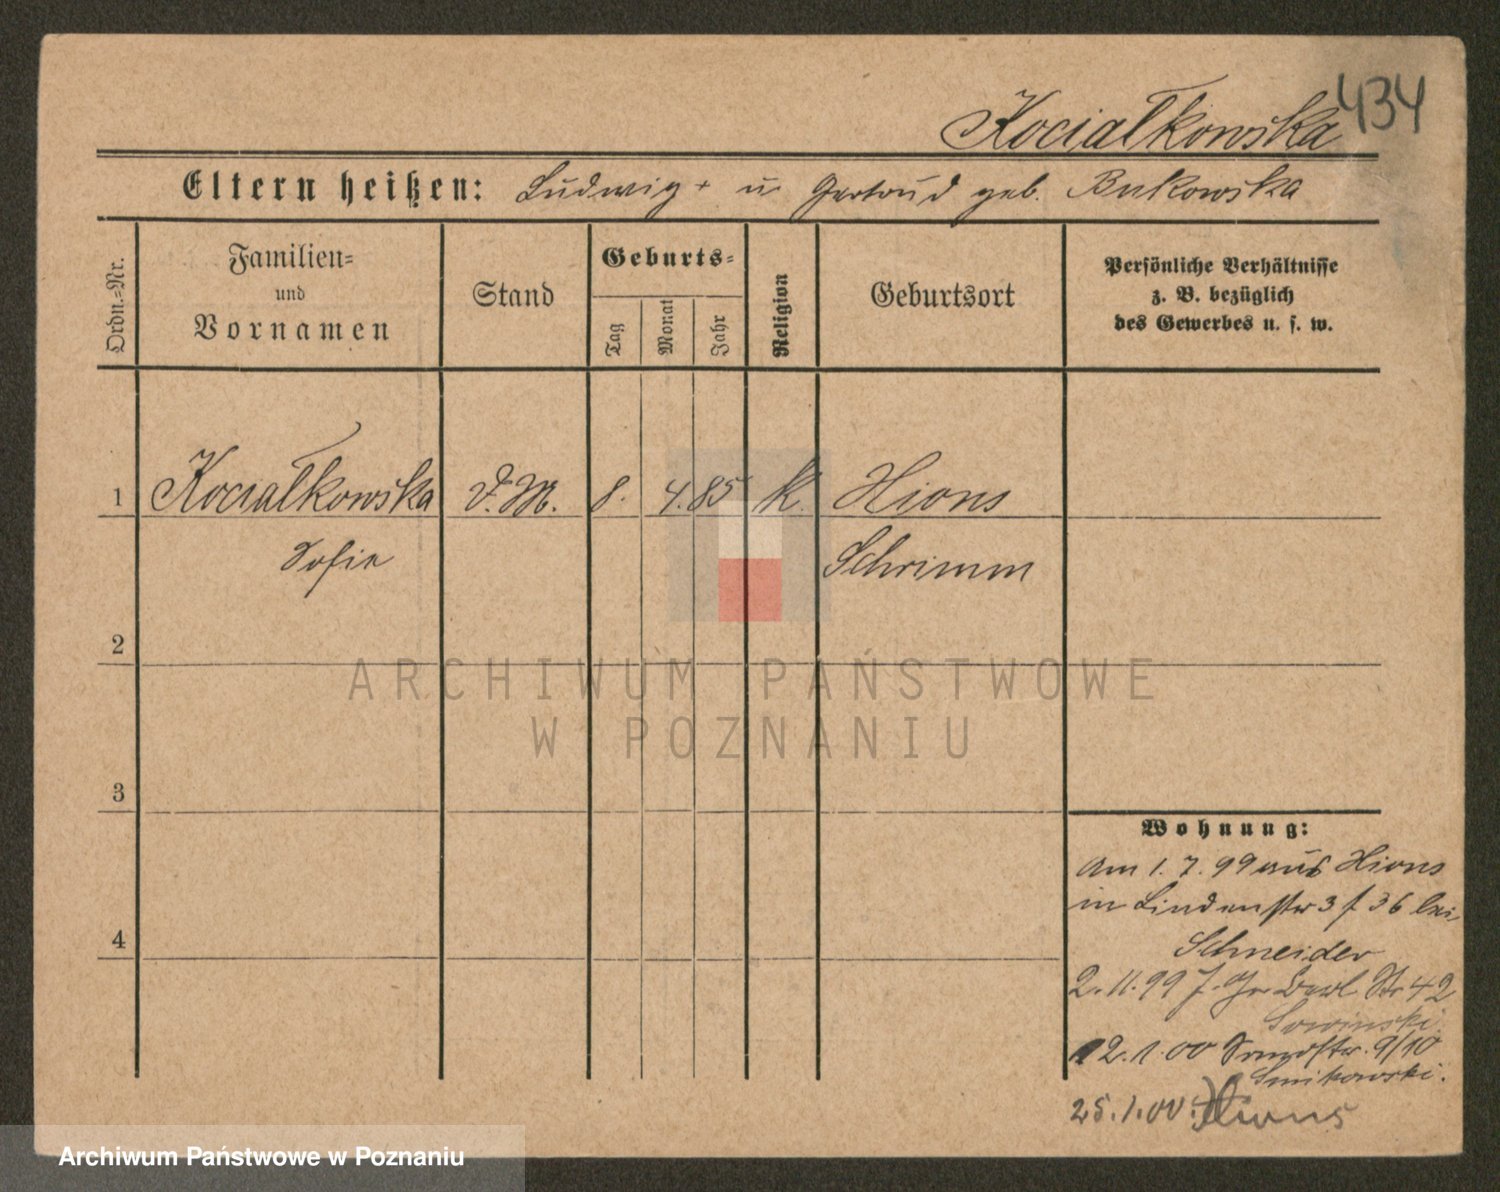 Kociałkowska 434
Eltern heißen: Ludwig + u. Gertrud geb. Bukowska
Ordn.=Nr.
Familien=
und
Vornamen
Stand
Geburts=
Tag
Monat
Jahr
Religion
Geburtsort
Persönliche Verhältnisse
z. B. bezüglich
des Gewerbes u. s. w.
1 Kociałkowska D.M. 8. 4. 85 k. Xions
Sofie Schrimm
2
3
4
Wohnung:
Am 1. 7. 99 aus Xions
in Lindenstr 3 f 36 bei
Schneider
2. 11. 99 Berl. Str 42
Sowinski.
12. 1. 00 9/10
25. 1. 00. Xions
ARCHIWUM PAŃSTWOWE
W POZNANIU
Archiwum Państwowe w Poznaniu